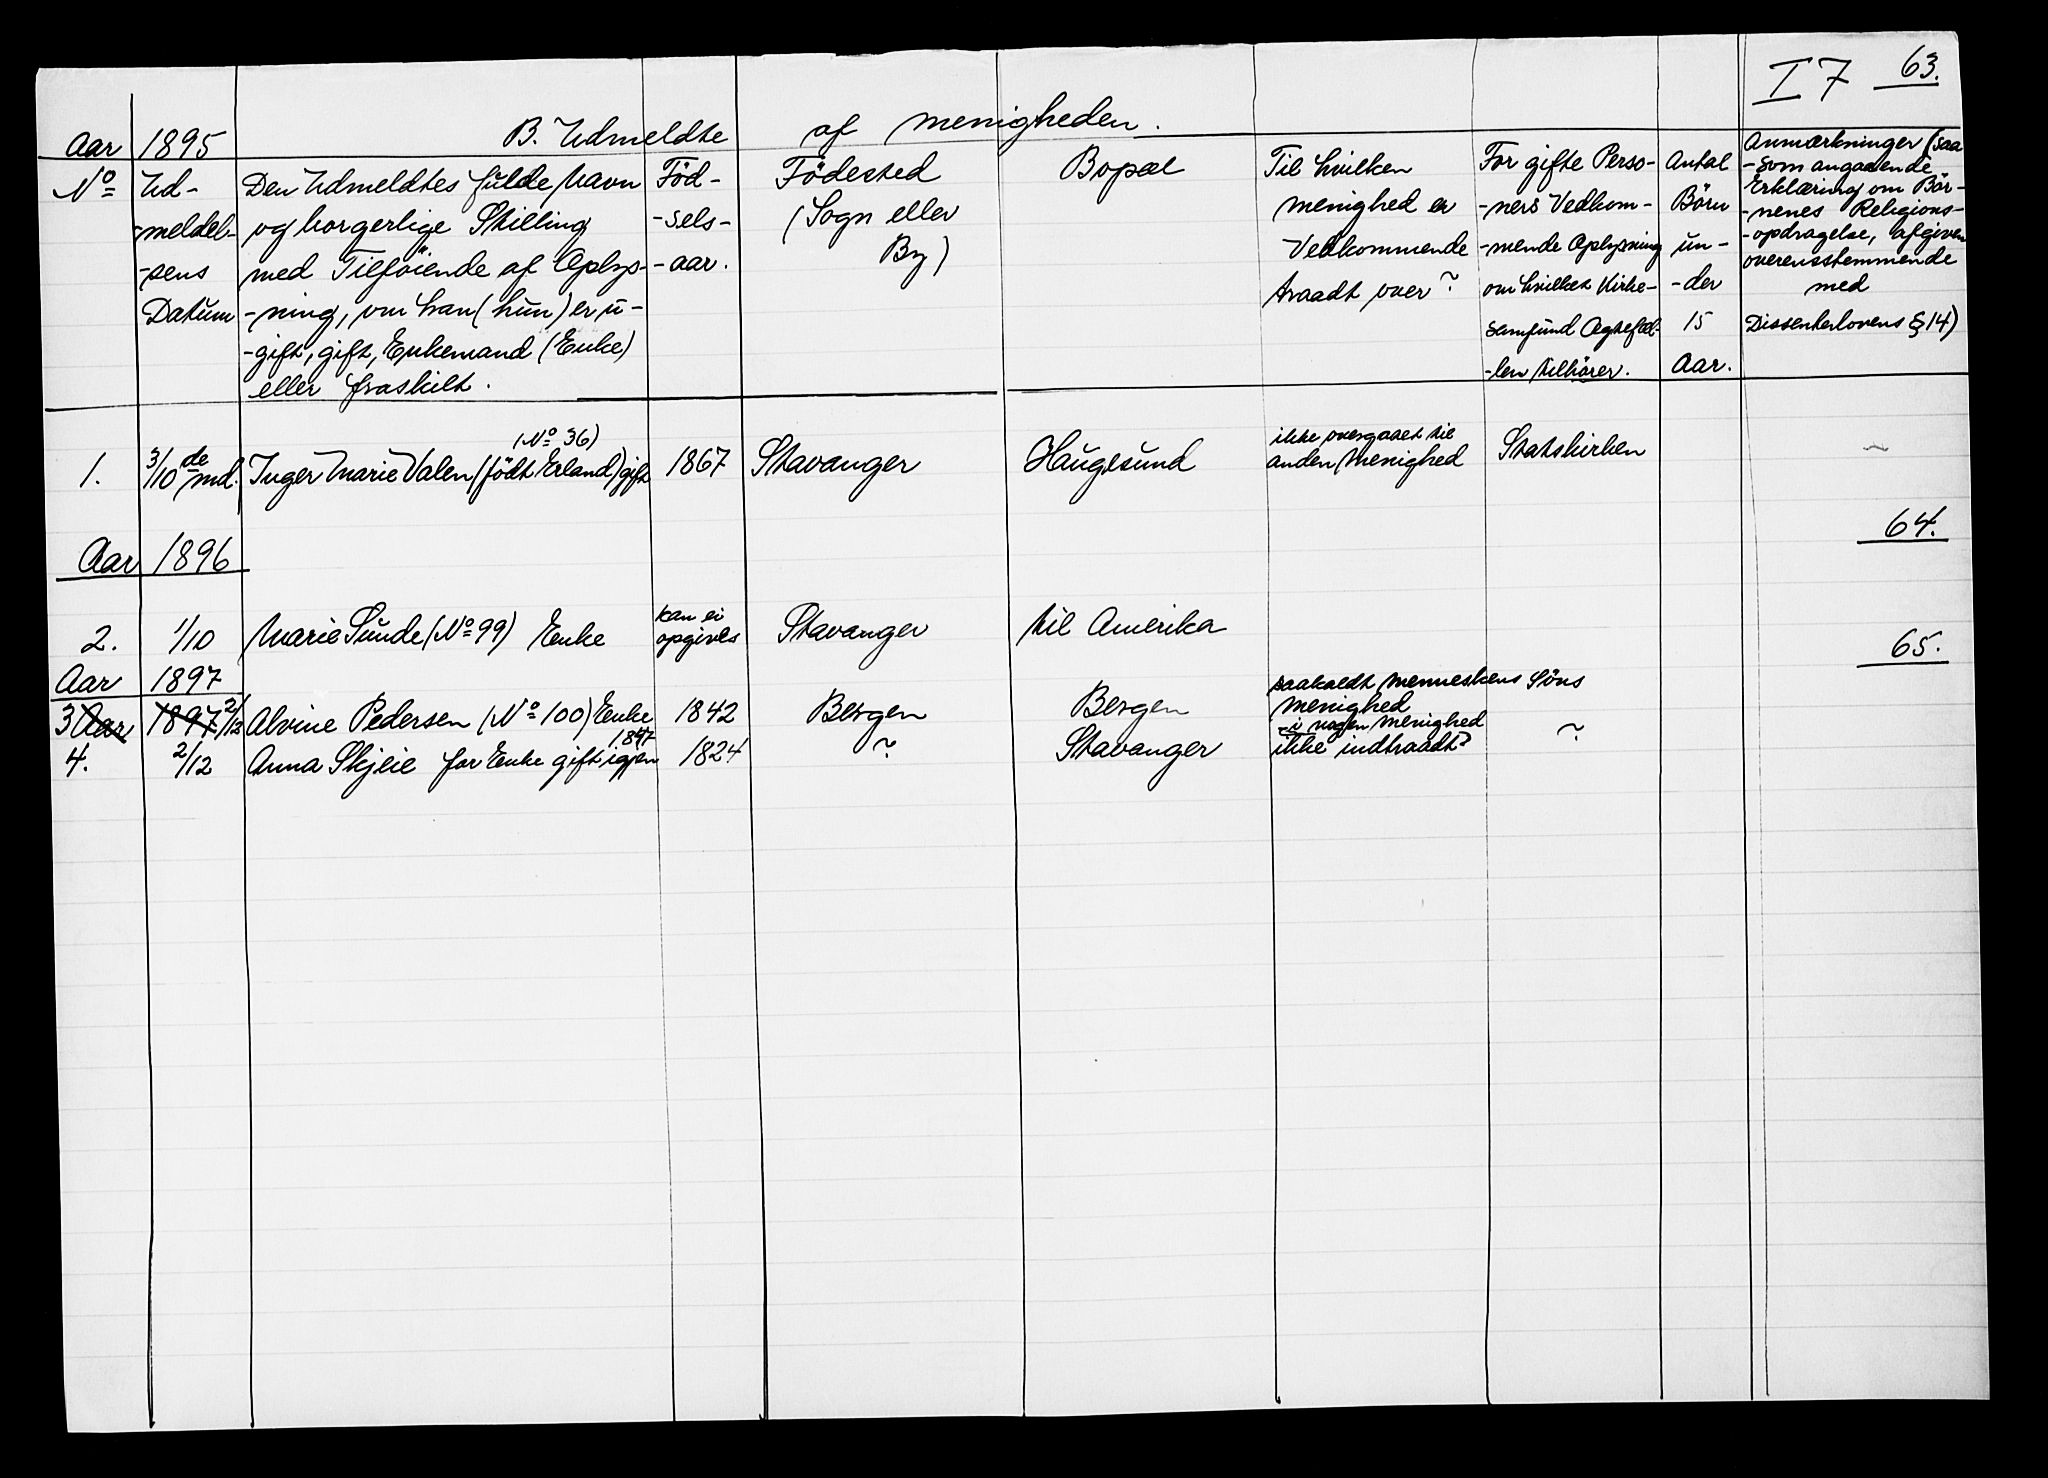 I 7 63.
Aar 1895 B. Udmeldte af Menigheden.
No Ud-
-meldel-
-sens
Datum
Den Udmeldtes fulde Navn
og borgerlige Stilling
med Tilføiende af Oplys-
-ning, om han (hun) er u-
-gift, gift, Enkemand (Enke)
eller fraskilt.
Föd-
-sels-
-aar.
Födested
(Sogn eller
By)
Bopæl
Til hvilken
Menighed er
Vedkommende
traadt over?
For gifte Perso-
-ners Vedkom-
-mende Oplysning
om hvilket Kirke-
samfund Ægtefæl-
-len tilhörer.
Antal
Börn
un-
-der
15
Aar.
Anmærkninger (saa
-som angaaende
Erklæring om Bör-
-nenes Religions-
-opdragelse, afgiven
overensstemmende
med
Dissenterlovens § 14)
(No 36)
1. 3/10 de md. Inger Marie Valen (födt Erland) gift 1867 Stavanger Haugesund ikke overgaaet til
anden Menighed Statskirken ~
64.
Aar 1896
2. 1/10 Marie Sunde (No 99) Enke kan ei
opgives Stavanger til Amerika
65.
Aar 1897
3 Aar 1897 2/12 Alvine Pedersen (No 100) Enke 1842 Bergen Bergen saakaldt Menneskens Söns
Menighed
4. 2/12 Anna Skjeie før Enke gift igjen 1847 1824 ~ Stavanger -i nogen Menighed
ikke indtraadt? ~